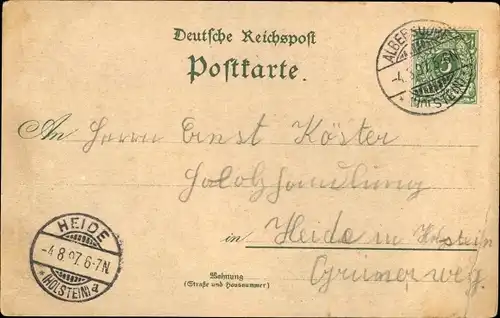 Deutsche Reichspost
Postkarte.
ALBERSDORF
-4.8.97
* (HOLSTEIN)
An Herrn Ernst Köster
Holzhandlung
in Heide in Holstein
Grünerweg.
Wohnung
(Straße und Hausnummer)
HEIDE
-4.8.97.6-7N.
*(HOLSTEIN)a